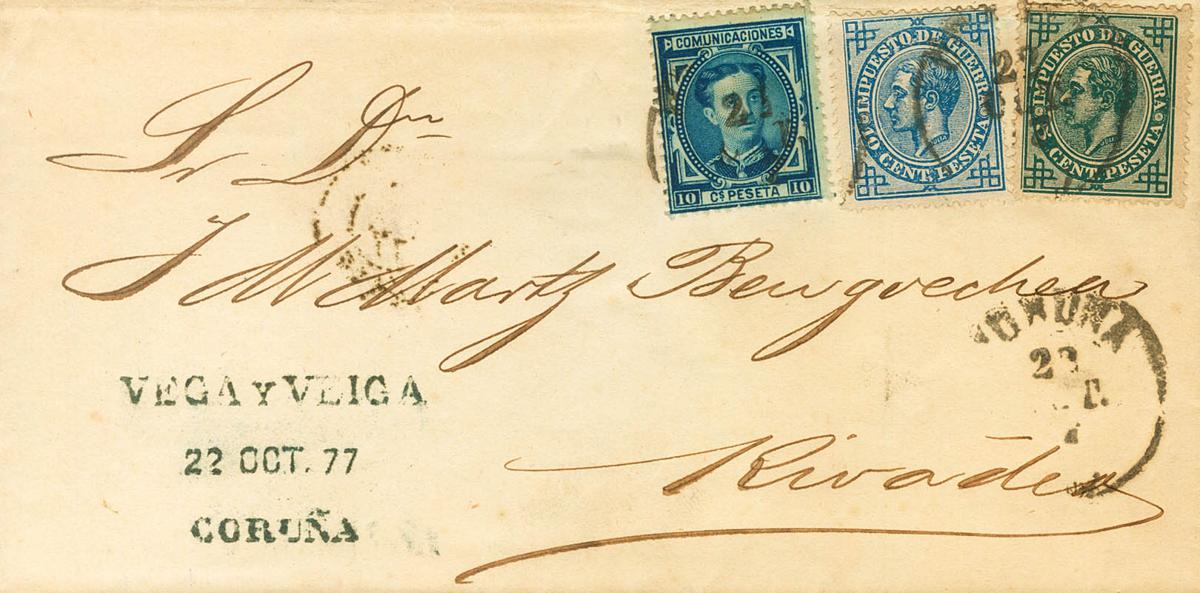 COMUNICACIONES
10 Cs PESETA 10
IMPUESTO DE GUERRA
10 CENT. PESETA
IMPUESTO DE GUERRA
5 CENT. PESETA
Sr Dn
J M Martz Bengoechea
Rivadeo
VEGA Y VEIGA
22 OCT. 77
CORUÑA
CORUÑA